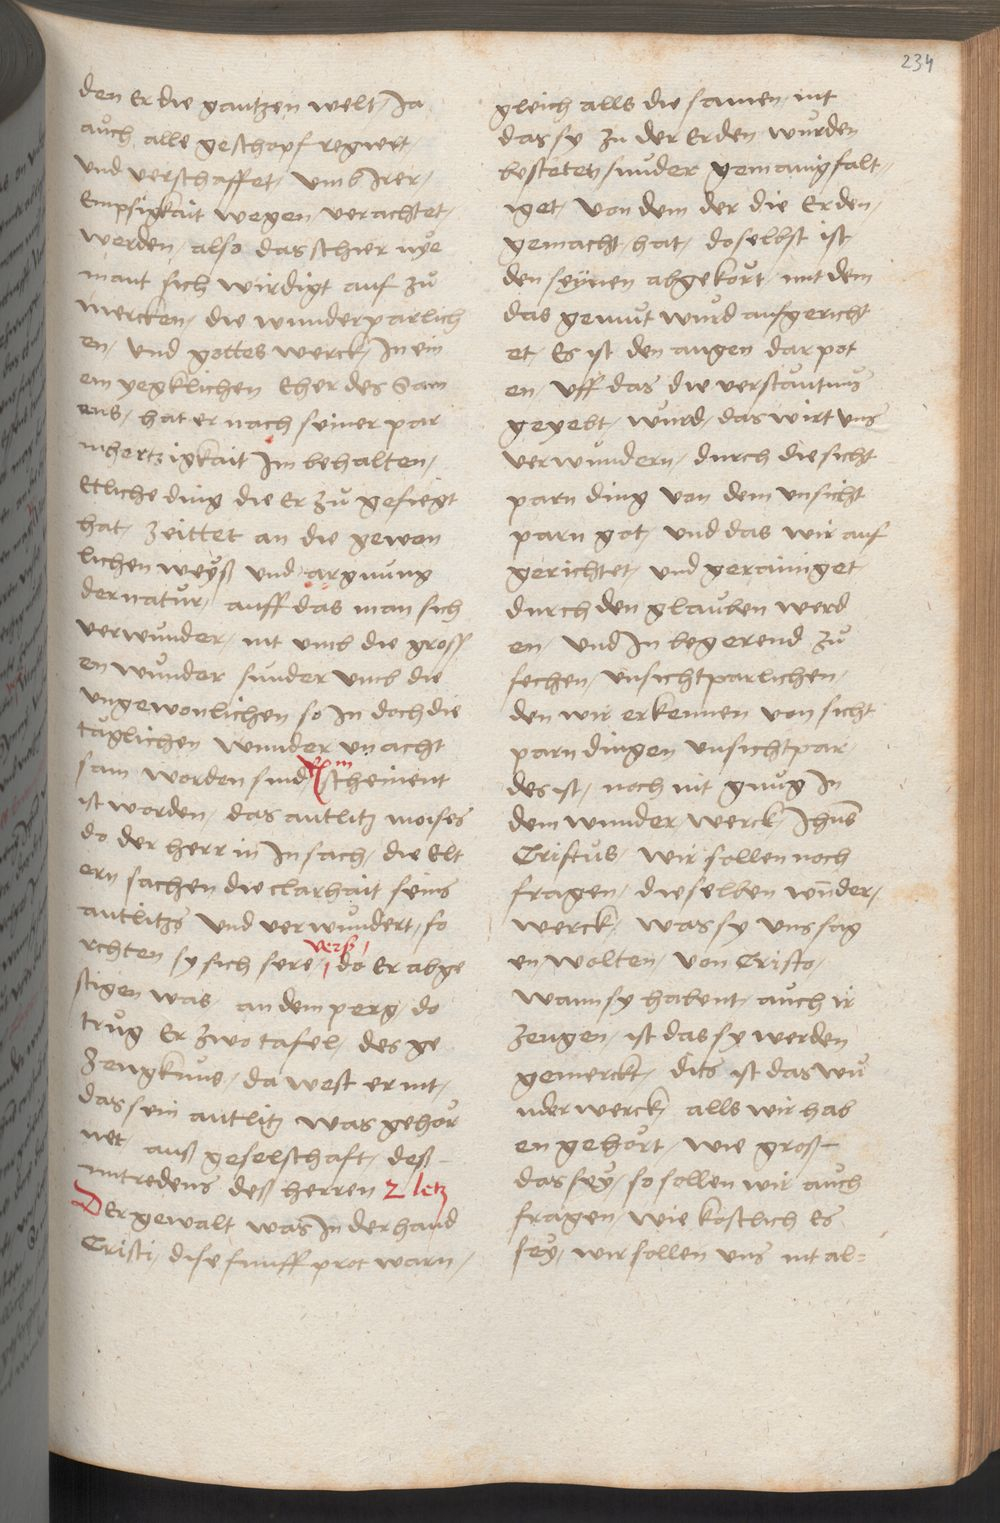 234
den Er die gantzen welt / Ja
auch alle geschopf regiert /
und verschaffet / umb Irer /
Empsigkait wegen / verachtet /
werden / also das schier nye
mant sich wirdigt auf zu
mercken / die wunderparlich
en / und gottes werck / In eim
eim yegklichen Eher des Sam
ens / hat er nach seiner par
mhertzigkait Im behalten /
Etliche ding die Er zu gefiegt
hat / zeittet an die gewon
lichen weyß und / argnung
der natur / auff das man sich
verwunder / nit umb die gross
en wunder sunder umb die
ungewonlichen so In doch die
täglichen wunder un acht
sam worden sind / Rm scheinent
ist worden / das antlitz moises
do der herr in In sach / die Elt
ern sachen die clarhait seins
antlitzs und verwundert / fo
rchten sy sich sere / verß do Er abge
stigen was / an dem perg / do
trug Er zwo tafel / des ge
zeugknus / da west er nit /
das sein antlitz was gehör
net / auß geselschaft / deß
mitredens deß herren 2 letz
Der gewalt was In der hand
Cristi / dise funff prot warn /
gleich alls die samen / nit
das sy zu der Erden wurden
bestetet / sunder gemanigfalt /
iget / von dem der die Erden /
gemacht hat / doselbst ist
den seynen abgekört / mit dem
das gemut wurd aufgericht
et / Es ist den augen dar pot
en / uff das die verstantnus
geyebt / wurd / das wirt uns
verwundern / durch die sicht
parn ding von dem unsicht
parn got / und das wir auf
gerichtet / und gerainiget
durch den glauben werd
en / und In begerend zu
sechen / unsichtparlichen /
den wir erkennen von sicht
parn dingen unsichtpar
des ist / noch nit gnug In
dem wunder / werck / Jhus
Cristus / wir sollen noch
fragen / dieselben wunder /
werck / was sy uns sag
en wolten / von Cristo /
wann sy habent / auch ir
zeugen / ist das sy werden
gemerckt / dits ist das wu
nder werck / alls wir hab
en gehört / wie groß
das sey / so sollen wir auch
fragen / wie kostlich Es
sey / wir sollen uns nit al=